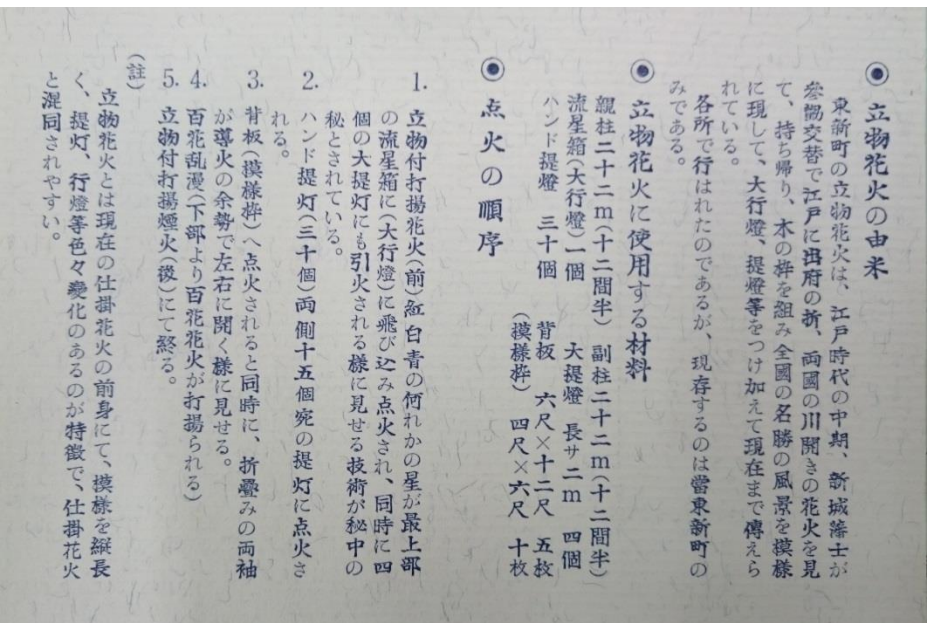 ◉ 立物花火の由来
東新町の立物花火は、江戸時代の中期、新城藩士が
参勤交替で江戸に出府の折、両國の川開きの花火を見
て、持ち帰り、木の枠を組み全國の名勝の風景を模様
に現して、大行燈、提燈等をつけ加えて現在まで傳えら
れている。
各所で行はれたのであるが、現存するのは當東新町の
みである。
◉ 立物花火に使用する材料
親柱二十二m(十二間半) 副柱二十二m(十二間半)
流星箱(大行燈)一個 大提燈 長サ二m 四個
ハンド提燈 三十個 背板 六尺×十二尺 五枚
(模様枠) 四尺×六尺 十枚
◉ 点火の順序
1. 立物付打揚花火(前)紅白青の何れかの星が最上部
の流星箱に(大行燈)に飛び込み点火され、同時に四
個の大提灯にも引火される様に見せる技術が秘中の
秘とされている。
2. ハンド提灯(三十個)両側十五個宛の提灯に点火さ
れる。
3. 背板(模様枠)へ点火されると同時に、折疊みの両袖
が導火の余勢で左右に開く様に見せる。
4. 百花乱漫(下部より百花花火が打揚られる)
5. 立物付打揚煙火(後)にて終る。
(註)
立物花火とは現在の仕掛花火の前身にて、模様を縦長
く、提灯、行燈等色々變化のあるのが特徴で、仕掛花火
と混同されやすい。